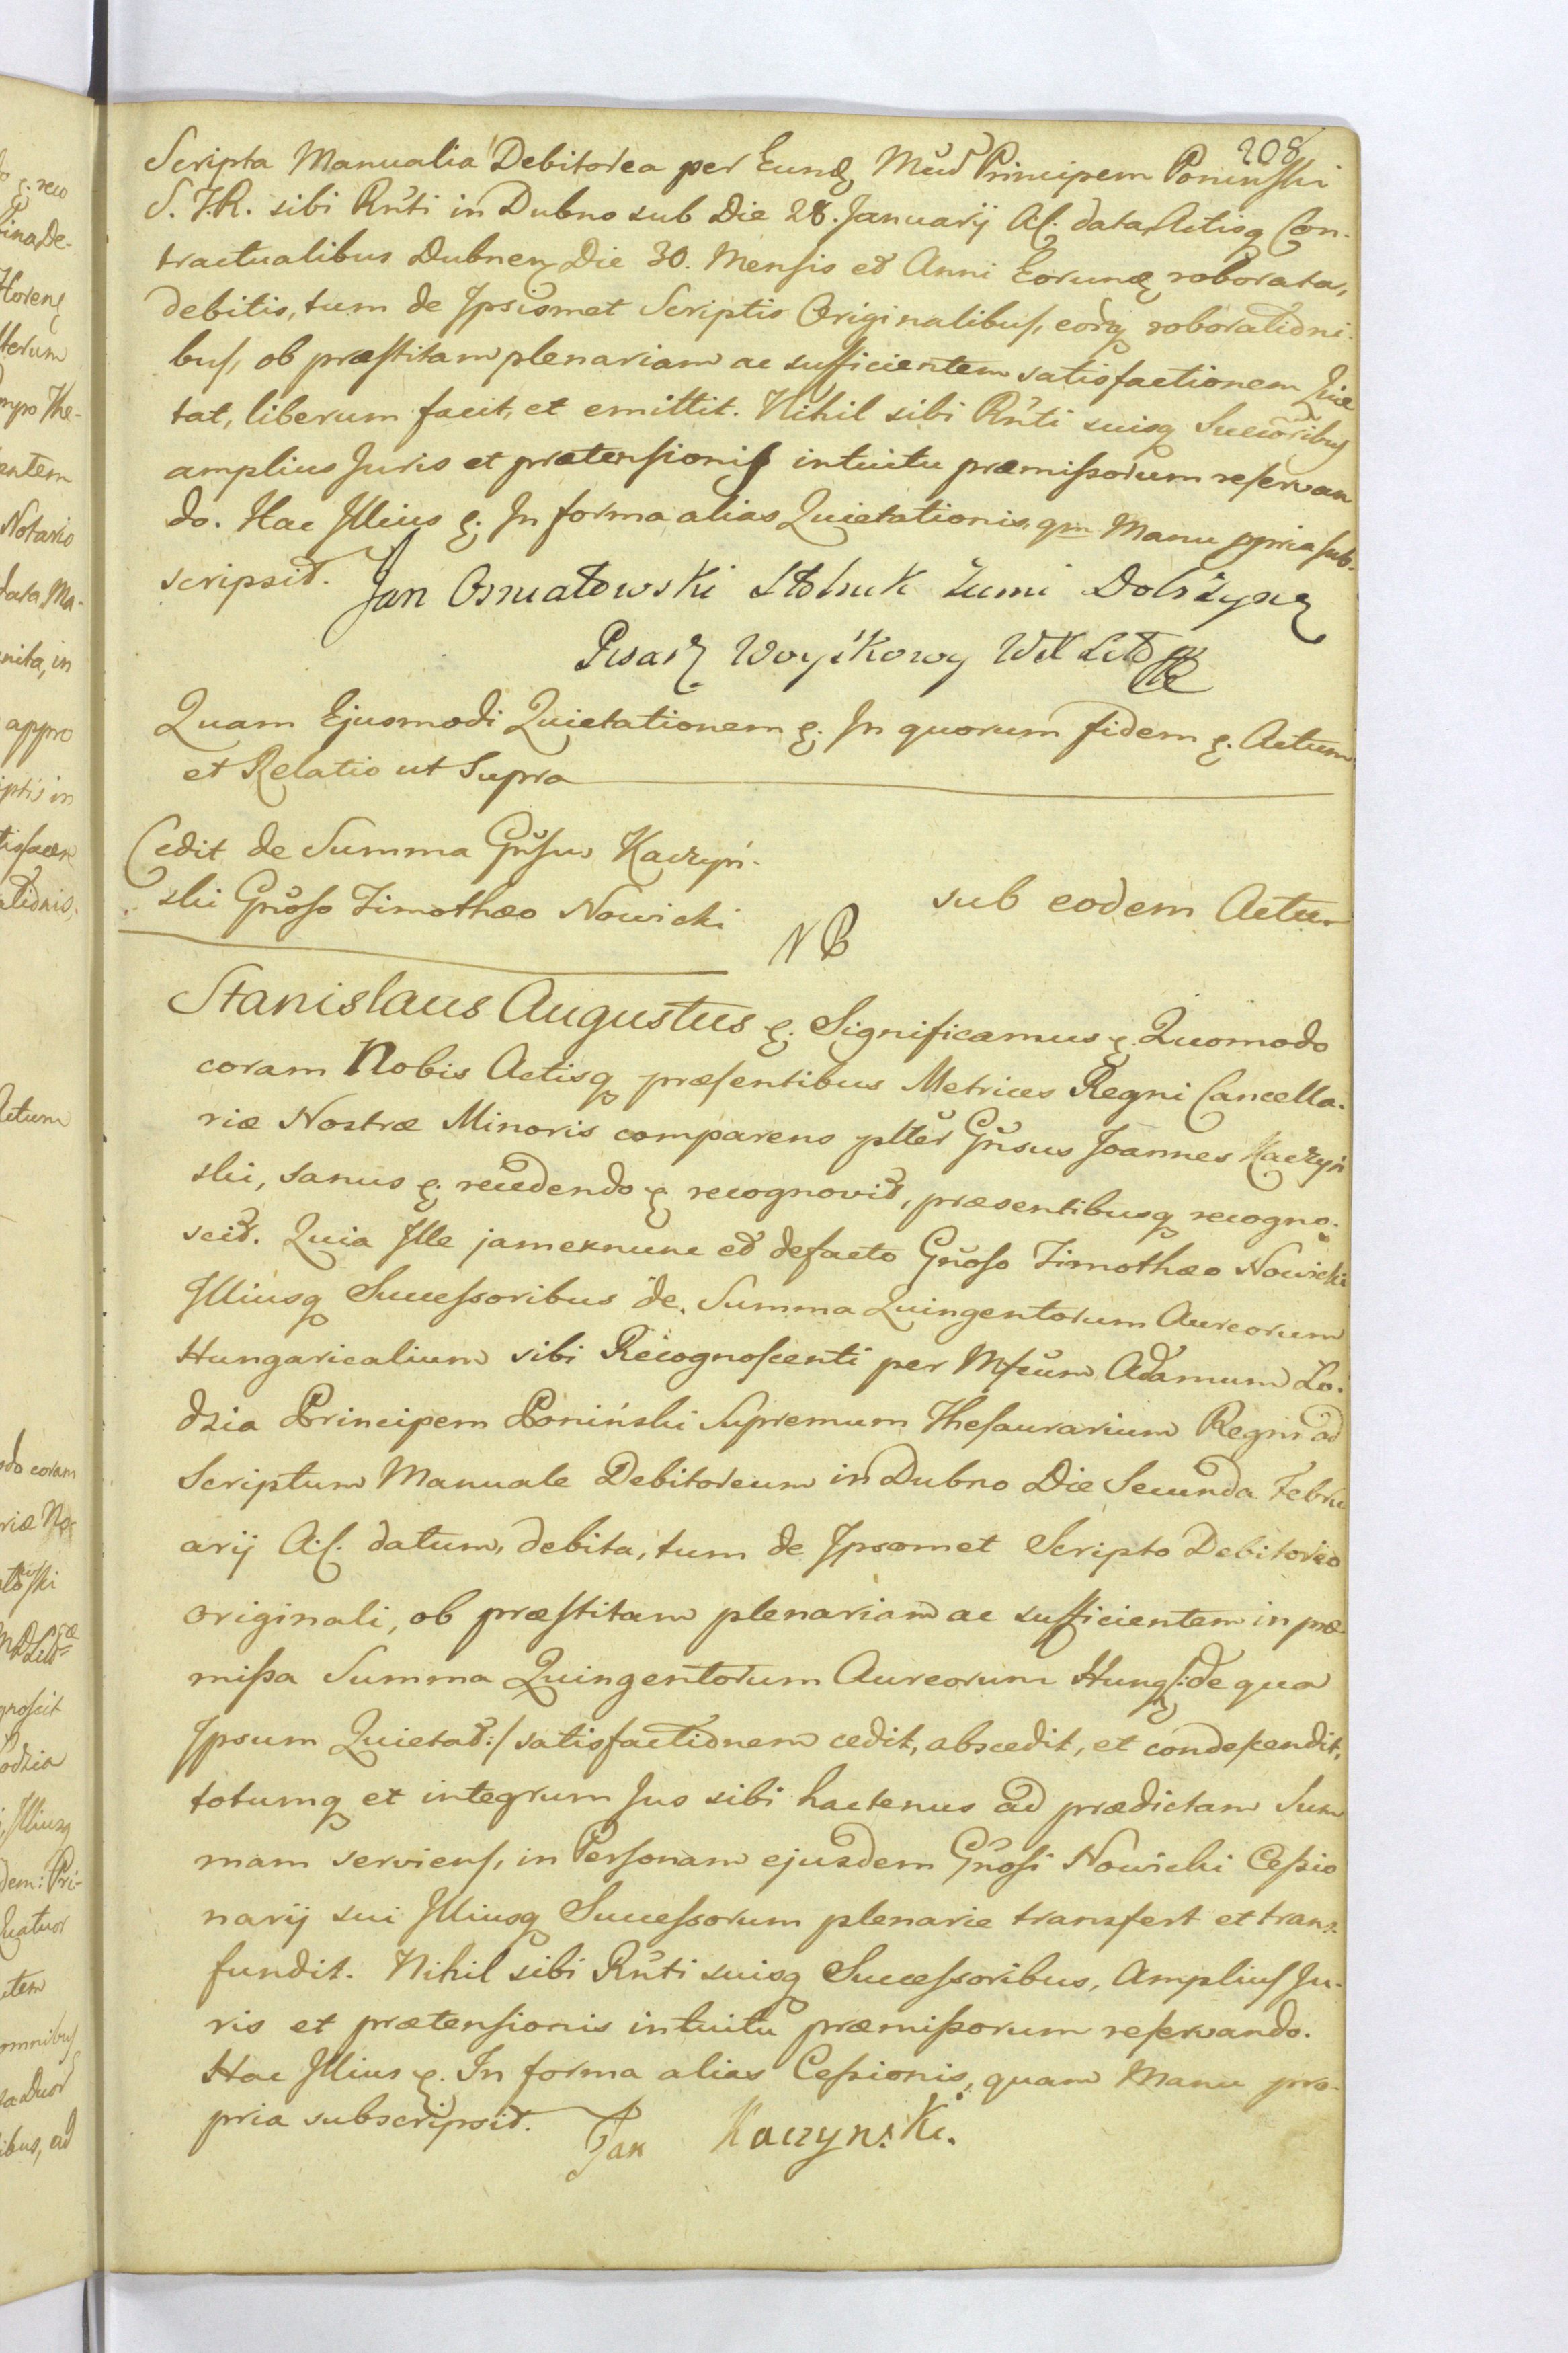 208
Scripta Manualia Debitorea per Eund Mcud Principem Poninski
S. T. R. sibi Rnti in Dubno sub Die 28. Januarij A. C. data, Actisq Con-
tractualibus Dubnen Die 30. Mensis et Anni Eorund roborata,
debitis, tum de Ipsismet Scriptis Originalibus, eorq roborationi-
bus, ob præstitam plenariam ac sufficientem satisfactionem Quie
tat, liberum facit, et emittit. Nihil sibi Rnti suisq Succoribus
amplius Juris et prætensionis intuitu præmissorum reservan
do. Hac Illius &. In forma alias Quietationis, qm Manu ppria sub-
scripsit. Jan Ośniałowski Stolnik Ziemi Dobrzyn
Pisarz Woyskowy WX Litt
Quam Ejusmodi Quietationem &. In quorum fidem &. Actum
et Relatio ut Supra
Cedit de Summa Gnsus Kaczyń-
ski Gnoso Timothæo Nowicki
sub eodem Actu
NB
Stanislaus Augustus &. Significamus &. Quomodo
coram Nobis Actisq præsentibus Metrices Regni Cancella-
riæ Nostræ Minoris comparens plter Gnsus Joannes Kaczyń
ski, sanus &. recedendo &. recognovit, præsentibusq recogno-
scit. Quia Ille jamexnunc et defacto Gnoso Timothæo Nowicki
Illiusq Successoribus de Summa Quingentorum Aureorum
Hungaricalium sibi Recognoscenti per Mfcum Adamum Lo-
dzia Principem Poniński Supremum Thesaurarium Regni ad
Scriptum Manuale Debitoreum in Dubno Die Secunda Febru
arij A. C. datum, debita, tum de Ipsomet Scripto Debitoreo
originali, ob præstitam plenariam ac sufficientem in præ
missa Summa Quingentorum Aureorum Hung /: de qua
Ipsum Quietat :/ satisfactionem cedit, abscedit, et condescendit,
totumq et integrum Jus sibi hactenus ad prædictam Sum
mam serviens, in Personam ejusdem Gnosi Nowicki Cessio
narij sui Illiusq Successorum plenarie transfert et trans-
fundit. Nihil sibi Rnti suisq Successoribus, Amplius Ju-
ris et prætensionis intuitu præmissorum reservando.
Hac Illius &. In forma alias Cessionis, quam Manu pro-
pria subscripsit. Jan Kaczynski.